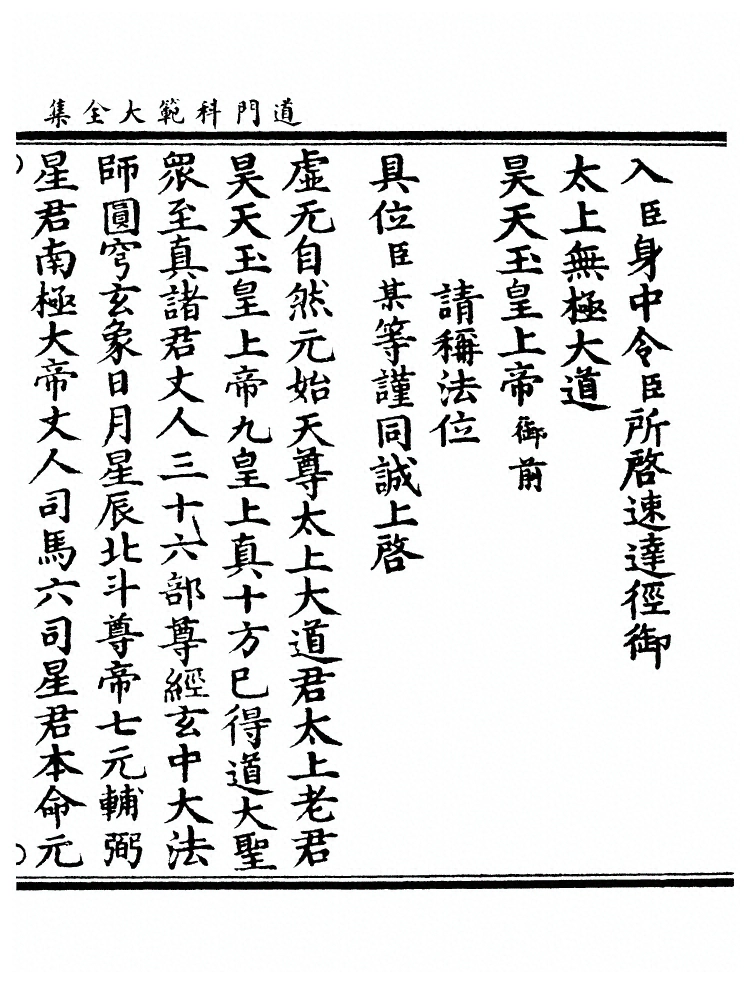 道門科範大全集
入臣身中令臣所啓速達徑御
太上無極大道
昊天玉皇上帝御前
請稱法位
具位臣某等謹同誠上啓
虛无自然元始天尊太上大道君太上老君
昊天玉皇上帝九皇上真十方已得道大聖
衆至真諸君丈人三十六部尊經玄中大法
師圓穹玄象日月星辰北斗尊帝七元輔弼
星君南極大帝丈人司馬六司星君本命元